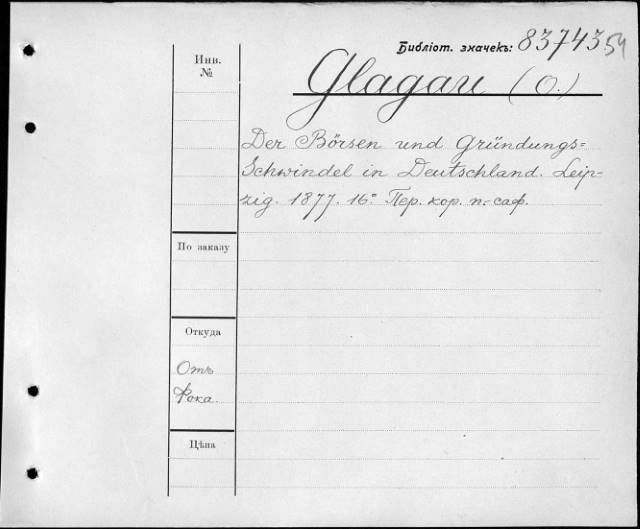 Библіот. значекъ: 83743 54
Инв.
№
Glagau (O.)
Der Börsen und Gründungs=
Schwindel in Deutschland. Leip=
zig. 1877. 16° Пер. кор. п.-саф.
По заказу
Откуда
Отъ
Фока.
Цѣна